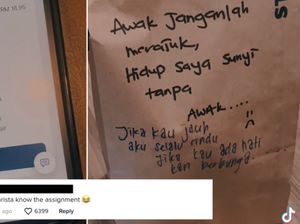 RM 16.95
ST
Awak janganlah
merajuk,
Hidup saya sunyi
tanpa
AWAK....
Jika kau jauh
aku selalu rindu
Jika kau ada hati
kan berbunga......
rista know the assignment 😂
ago
6399
Reply